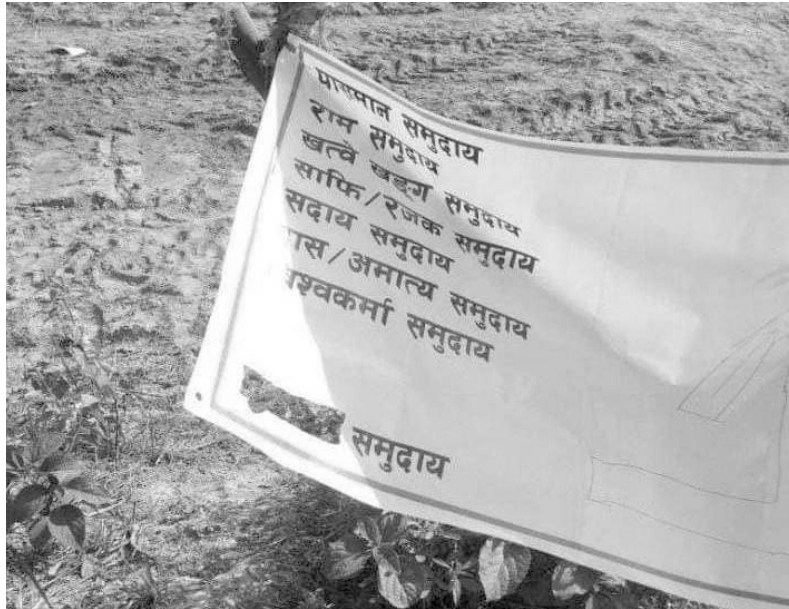 समुदाय
राम समुदाय
खत्वे खड्ग समुदाय
साफि/रजक समुदाय
सदाय समुदाय
दास/अमात्य समुदाय
विश्वकर्मा समुदाय
समुदाय